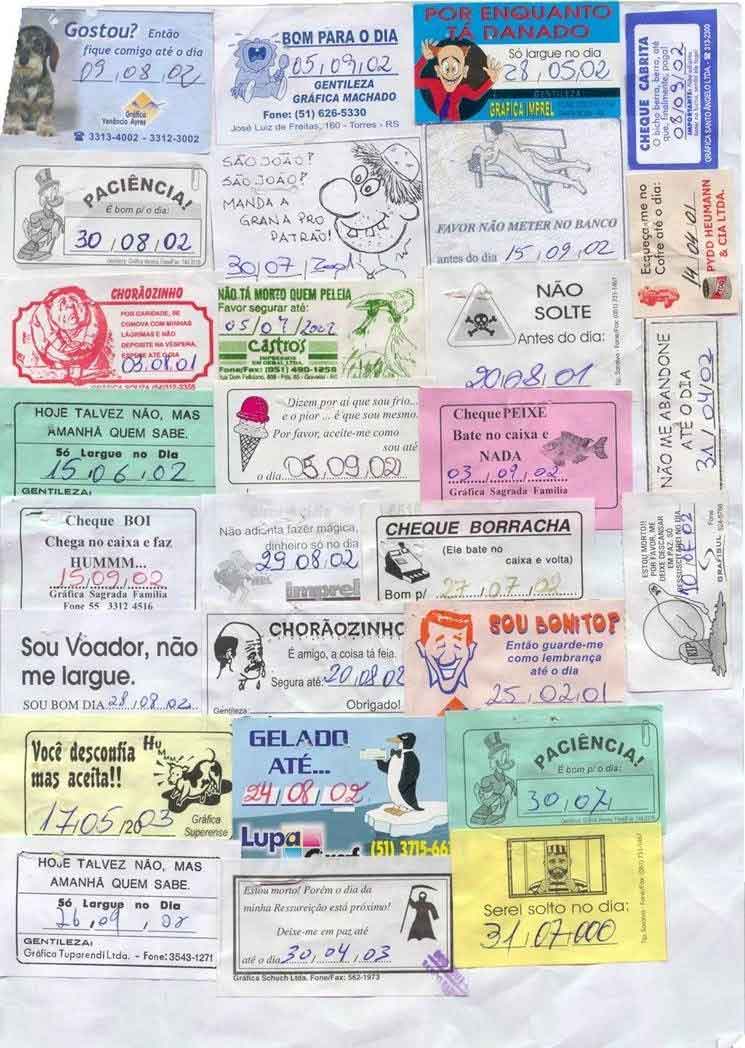 Gostou? Então
fique comigo até o dia
09,08,02
Gráfica
Venâncio Ayres
☎ 3313-4002 - 3312-3002
BOM PARA O DIA
05,09,02
GENTILEZA
GRÁFICA MACHADO
Fone: (51) 626-5330
José Luiz de Freitas, 160 - Torres - RS
POR ENQUANTO
TÁ DANADO
Só largue no dia
28,05,02
GENTILEZA:
GRÁFICA IMPREL
CHEQUE CABRITA
O bicho berra, berra, até
que, finalmente, paga!
08/09/02
GRÁFICA SANTO ÂNGELO LTDA. - ☎ 313-2300
PACIÊNCIA!
É bom p/ o dia:
30,08,02
SÃO JOÃO?
SÃO JOÃO?
MANDA A
GRANA PRO
PATRÃO!
30/07
FAVOR NÃO METER NO BANCO
antes do dia 15,09,02
Esqueça-me no
Cofre até o dia:
14 04 01
PYDD HEUMANN
& CIA LTDA.
CHORÃOZINHO
POR CARIDADE, SE
COMOVA COM MINHAS
LÁGRIMAS E NÃO
DEPOSITE NA VÉSPERA.
ESPERE ATÉ O DIA
05.08.01
GRÁFICA SOUZA
NÃO TÁ MORTO QUEM PELEIA
Favor segurar até:
05/07/2002
Castros
IMPRESSOS
EM GERAL LTDA.
Fone/Fax: (051) 490-1258
NÃO
SOLTE
Antes do dia:
20,08,01
NÃO ME ABANDONE
ATÉ O DIA
31/04/02
HOJE TALVEZ NÃO, MAS
AMANHÃ QUEM SABE.
Só Largue no Dia
15,06,02
GENTILEZA:
Dizem por aí que sou frio...
e o pior ... é que sou mesmo.
Por favor, aceite-me como
sou até
o dia 05.09.02
Cheque PEIXE
Bate no caixa e
NADA
03,09,02
Gráfica Sagrada Família
Cheque BOI
Chega no caixa e faz
HUMMM...
15,09,02
Gráfica Sagrada Família
Fone 55 3312 4516
Não adianta fazer mágica,
dinheiro só no dia
29 08 02
imprel
CHEQUE BORRACHA
(Ele bate no
caixa e volta)
Bom p/ 27,07,02
ESTOU MORTO!!
POR FAVOR, ME
DEIXE DESCANSAR
EM PAZ, SÓ
RESSUSCITAREI NO DIA
GRAFISUL
Fone
Sou Voador, não
me largue.
SOU BOM DIA 28,08,02
CHORÃOZINHO
É amigo, a coisa tá feia.
Segura até: 20,08,02
Gentileza:
Obrigado!
SOU BONITO?
Então guarde-me
como lembrança
até o dia
25,02,01
Você desconfia
mas aceita!!
17,05/2003
Gráfica
Superense
GELADO
ATÉ...
24,08,02
Lupa
Graf
(51) 3715-66
PACIÊNCIA!
É bom p/ o dia:
30,07,
HOJE TALVEZ NÃO, MAS
AMANHÃ QUEM SABE.
Só Largue no Dia
26,09,02
GENTILEZA:
Gráfica Tuparendi Ltda. - Fone: 3543-1271
Estou morto! Porém o dia da
minha Ressureição está próximo!
Deixe-me em paz até
até o dia 30,04,03
Gráfica Schuch Ltda. Fone/Fax: 562-1973
Serei solto no dia:
31,07,000